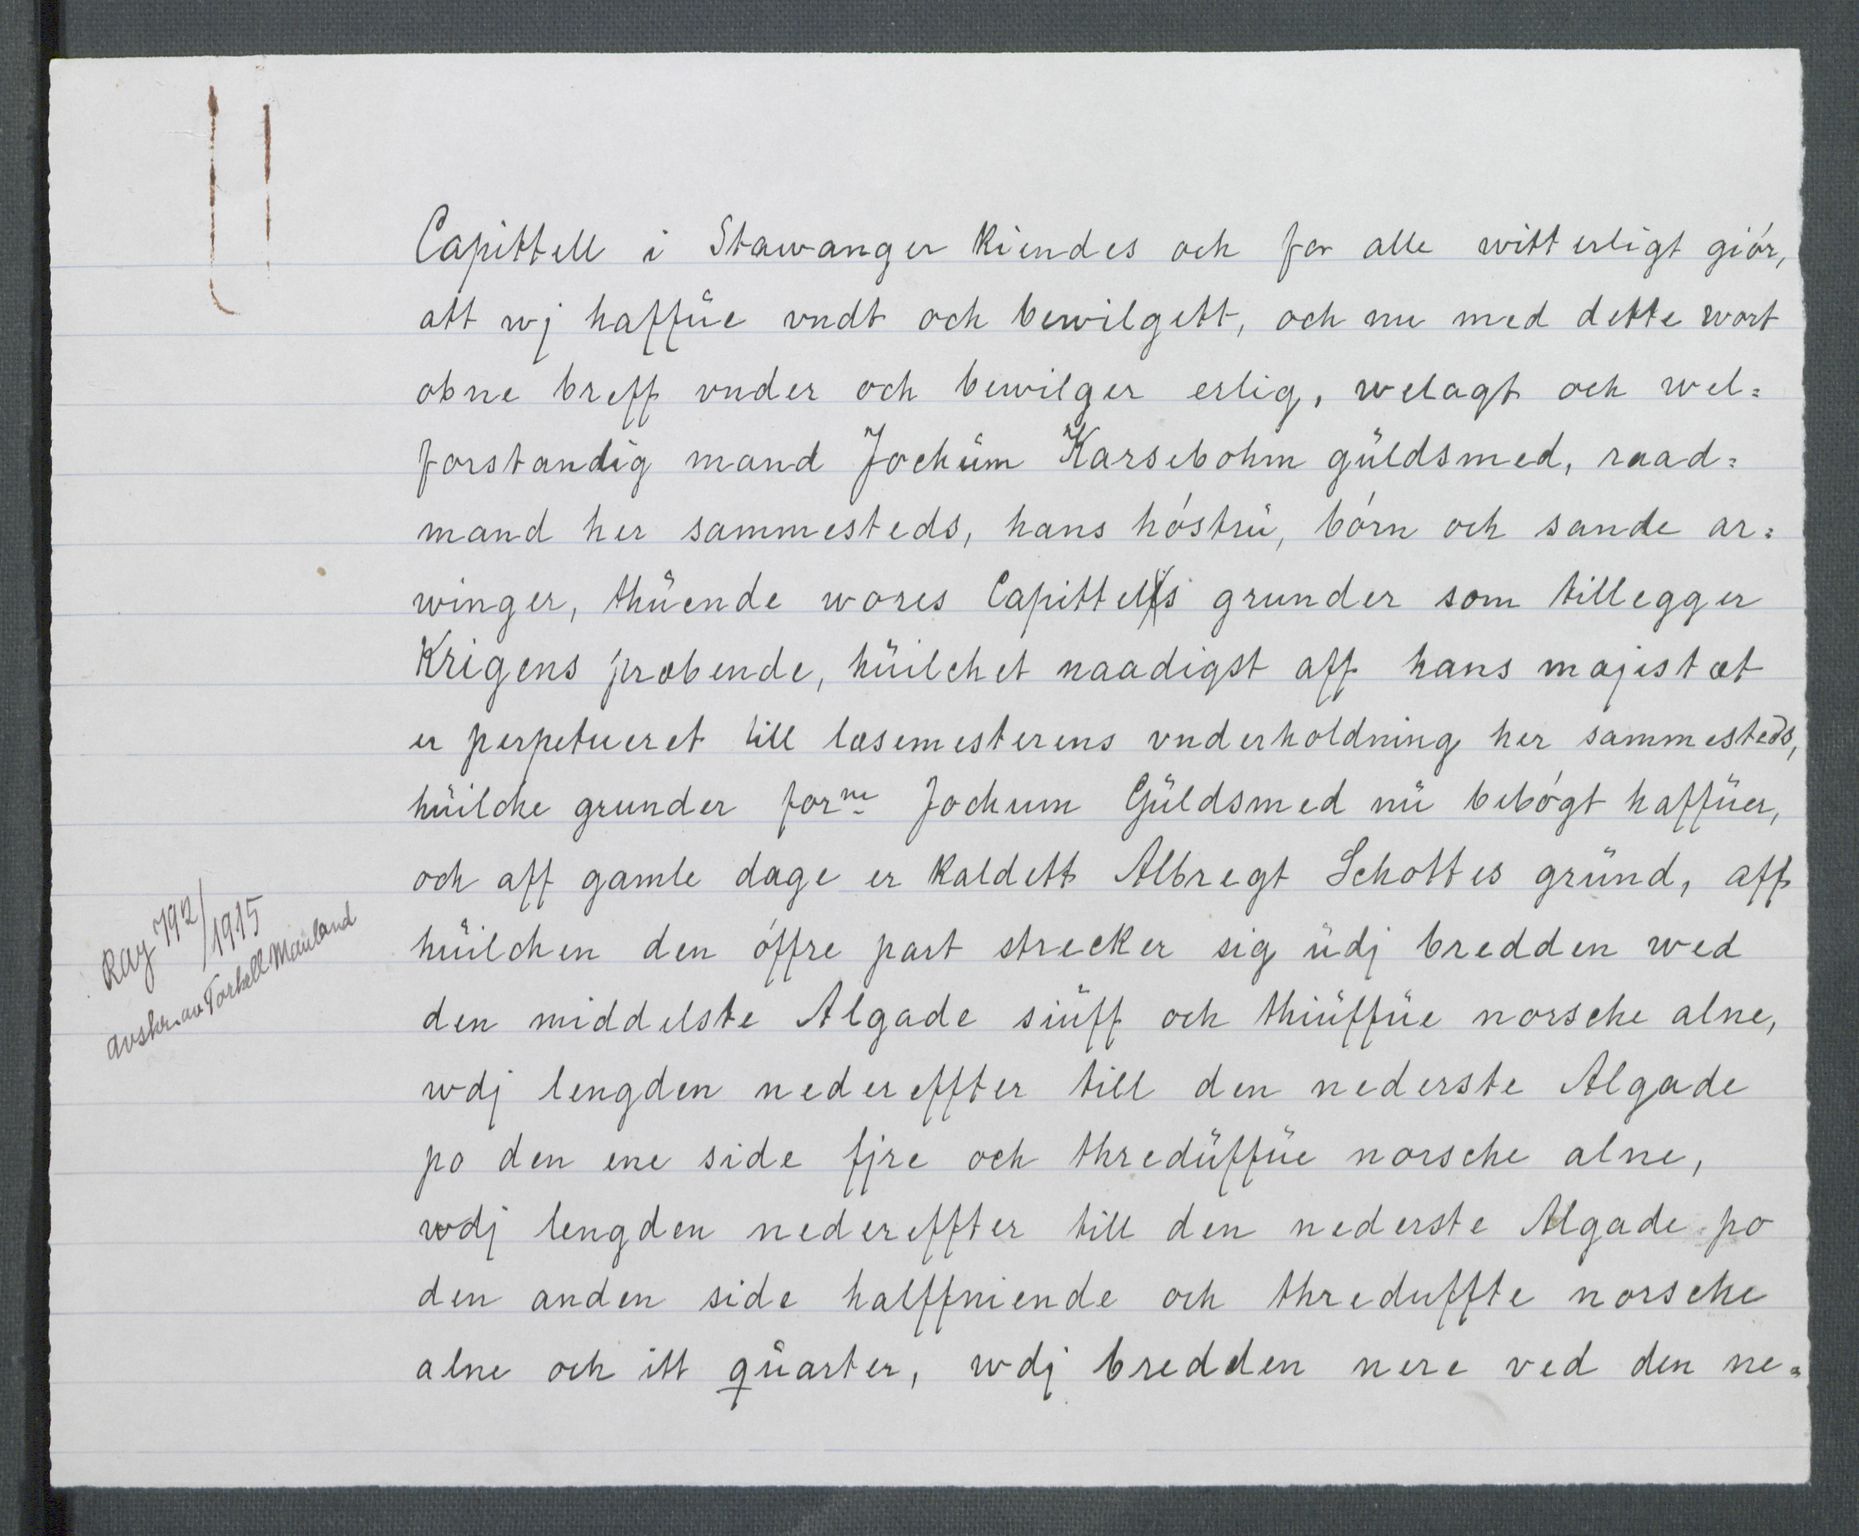 Capittell i Stawanger kiendes och for alle witterligt giór,
att wj haffüe vndt och bewilgett, och nu med dette wort
obne breff vnder och bewilger erlig, welagt och wel=
forstandig mand Jochüm Karsebohm güldsmed, raad=
mand her sammesteds, hans hóstrü, bórn och sande ar=
winger, thüende wores Capittels grunder som tillegger
Krigens præbende, hüilchet naadigst aff hans majestæt
er perpetueret till læsemesterens vnderholdning her sammesteds,
hüilche grunder forne Jochum Güldsmed nü bebógt haffüer,
och aff gamle dage er kaldett Albregt Schottes gründ, aff
hüilchen den óffre part strecker sig üdj bredden wed
den middelste Algade siüff och thiüffüe norsche alne,
wdj lengden nedereffter till den nederste Algade
po den ene side fjre och thredüffüe norsche alne,
wdj lengden nedereffter till den nederste Algade po
den anden side halffniende och threduffte norsche
alne och itt qüarter, wdj bredden nere ved den ne=
Ray 792/1915
avskr. av Torkell Mauland